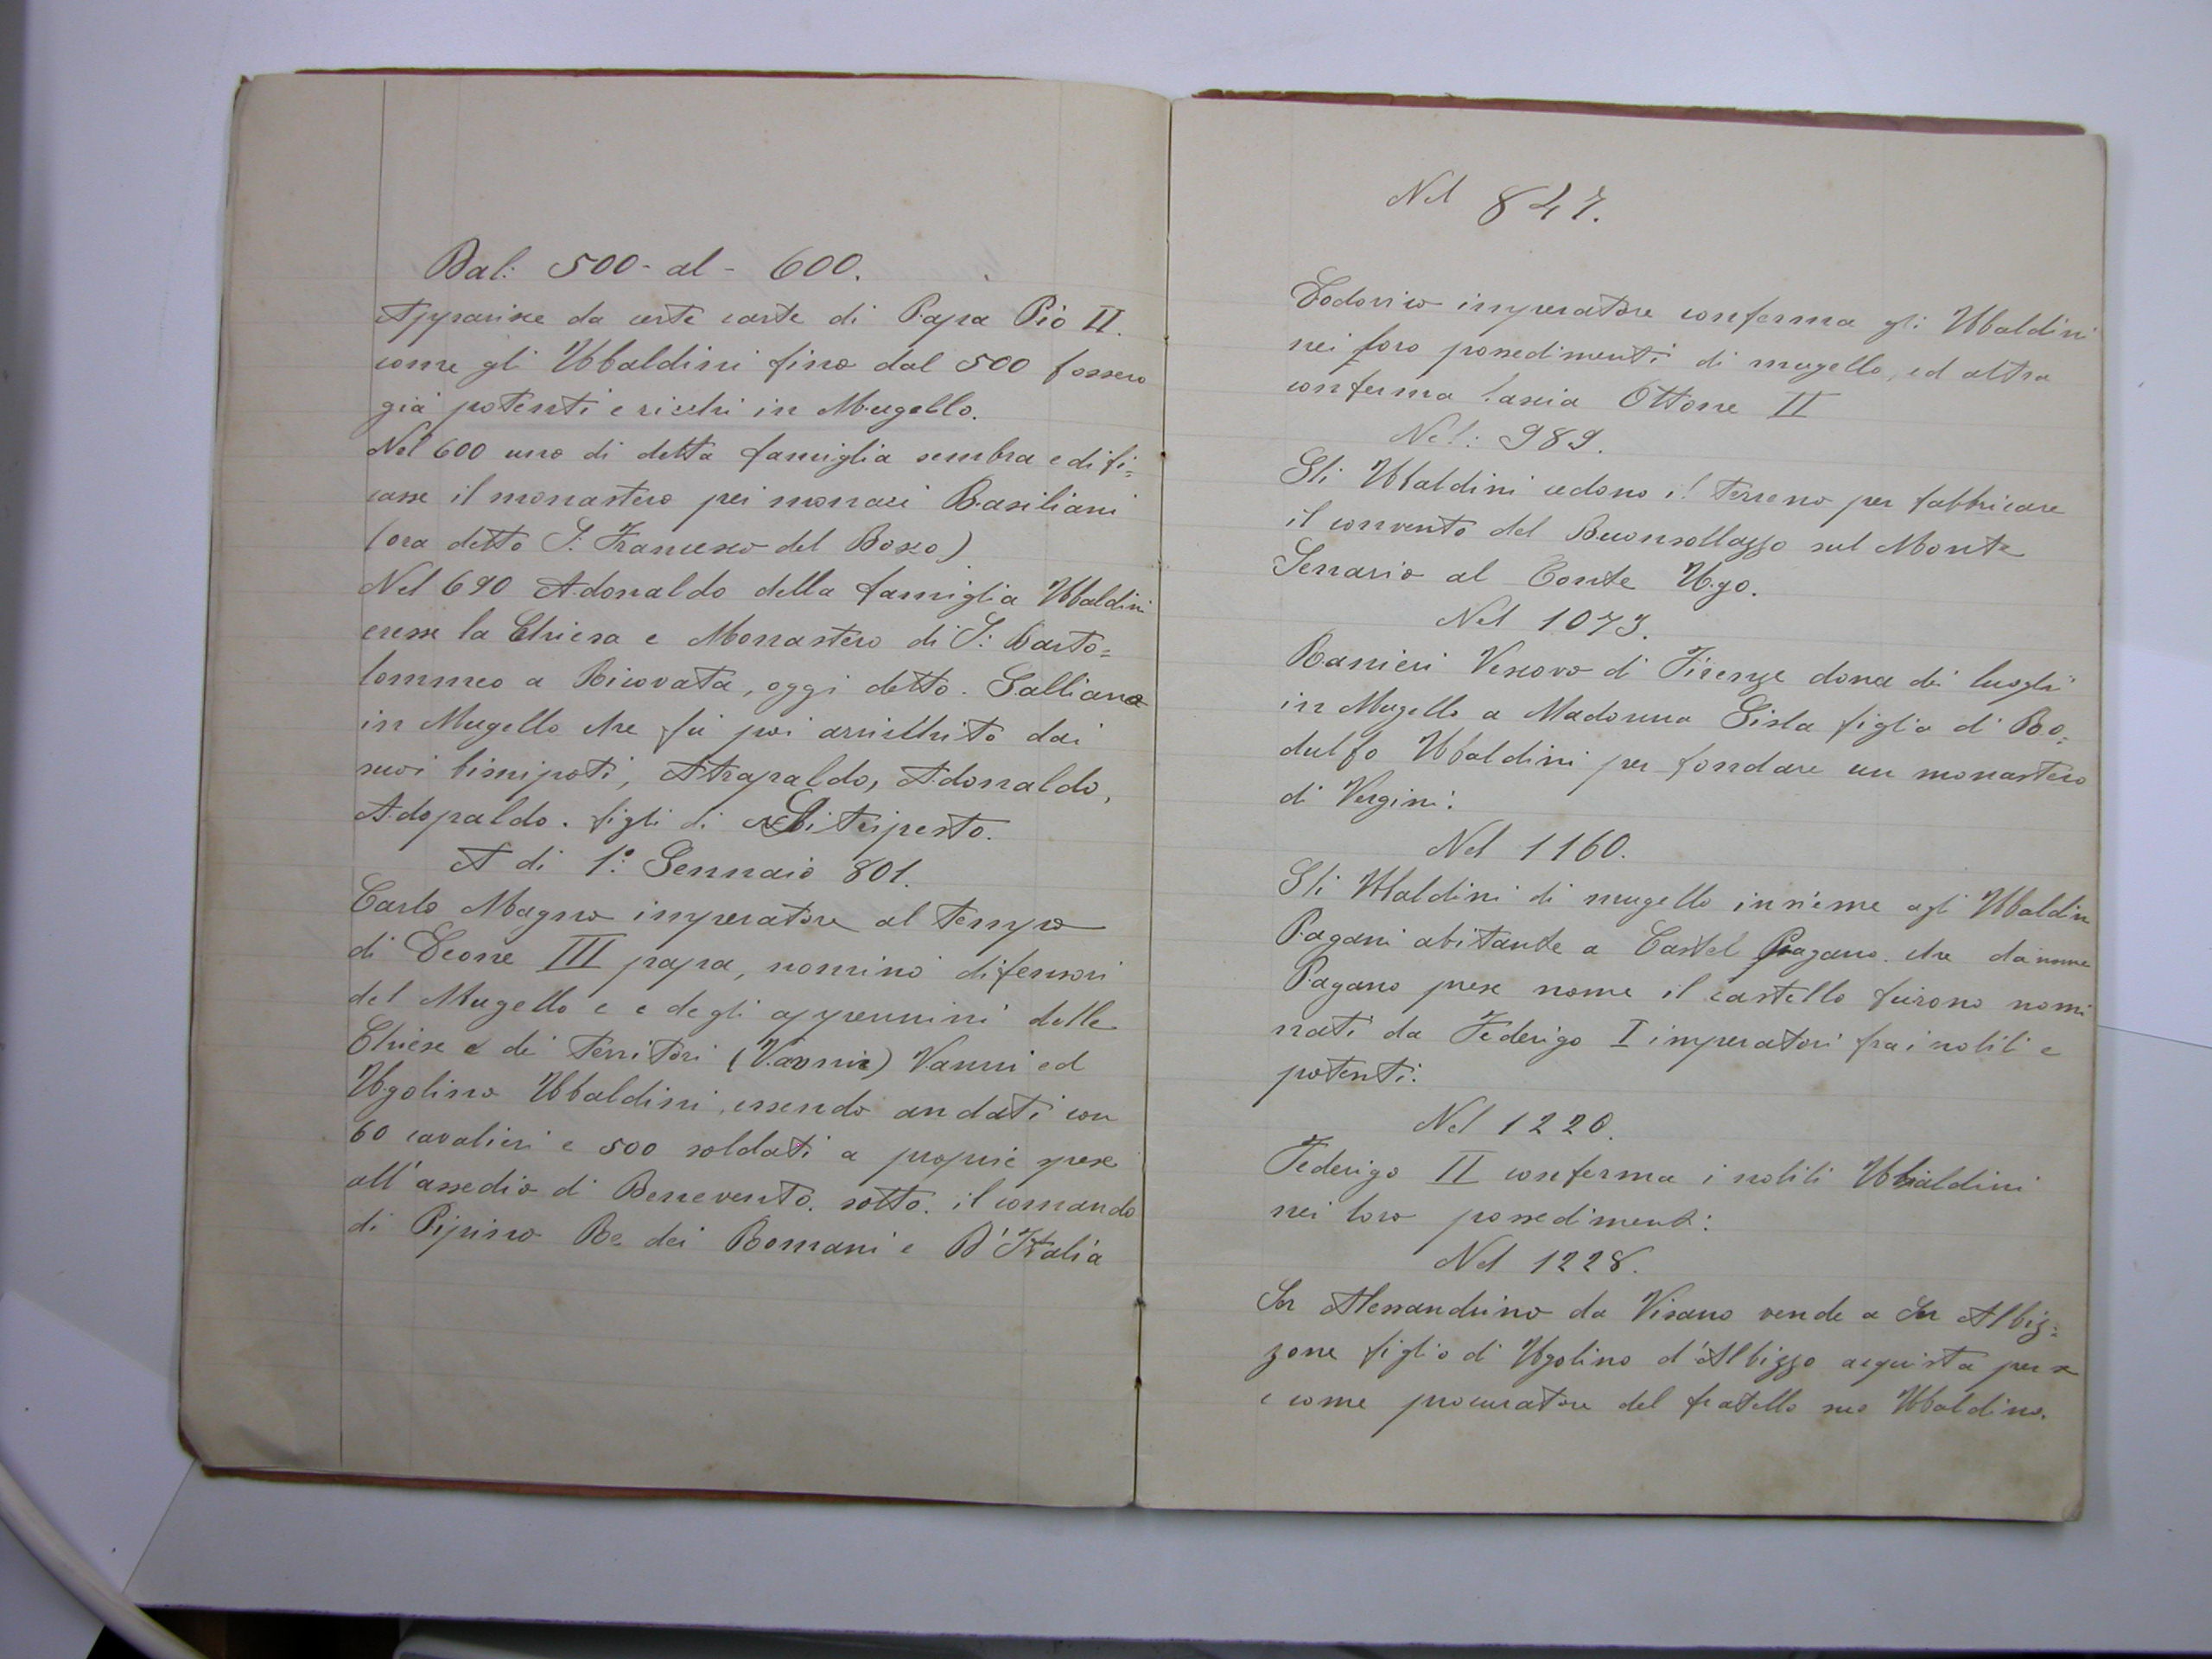 Dal: 500 - al - 600.
Apparisce da certe carte di Papa Pio II.
come gli Ubaldini fino dal 500 fossero
già potenti e ricchi in Mugello.
Nel 600 uno di detta famiglia sembra edifi=
casse il monastero pei monaci Basiliani
(ora detto S: Francesco del Bosco)
Nel 690 Adonaldo della famiglia Ubaldini
eresse la Chiesa e Monastero di S: Barto=
lommeo a Ricovata, oggi detto. Galliano
in Mugello che fu poi arricchito dai
suoi bisnipoti, Atrapaldo, Adonaldo,
Adopaldo. figli di
A di 1º: Gennaio 801.
Carlo Magno imperatore al tempo
di Leone III papa, nominò difensori
del Mugello e e degli appennini delle
Chiese e dei Territori (Vavnie) Vanni ed
Ugolino Ubaldini, essendo andati con
60 cavalieri e 500 soldati a proprie spese
all'assedio di Benevento. sotto. il comando
di Pipino Re dei Romani e D'Italia
Nel 847.
Lodovico imperatore conferma gli Ubaldini
nei loro possedimenti di mugello, ed altra
conferma lascia Ottone II
Nel: 989.
Gli Ubaldini cedono il terreno per fabbricare
il convento del Buonsollazzo sul Monte
Senario al Conte Ugo.
Nel 1073.
Ranieri Vescovo di Firenze dona dei luoghi
in Mugello a Madonna Gisla figlia di Ro=
dulfo Ubaldini per fondare un monastero
di Vergini:
Nel 1160.
Gli Ubaldini di mugello insieme agli Ubaldin
Pagani abitante a Castel Pagano. che da
Pagano prese nome il castello furono nomi
nati da Federigo I imperatori fra i nobili e
potenti:
Nel 1220.
Federigo II conferma i nobili Ubaldini
nei loro possedimenti:
Nel 1228.
Ser Alessandrino da Visano vende a Ser Albiz=
zone figlio di Ugolino d'Albizzo acquista per se
e come procuratore del fratello suo Ubaldino.